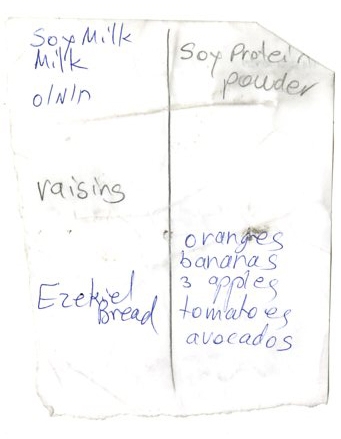 Soy Milk
Milk
o/N/n
raisins
Ezekiel
Bread
Soy Protein
powder
oranges
bananas
3 apples
tomatoes
avocados